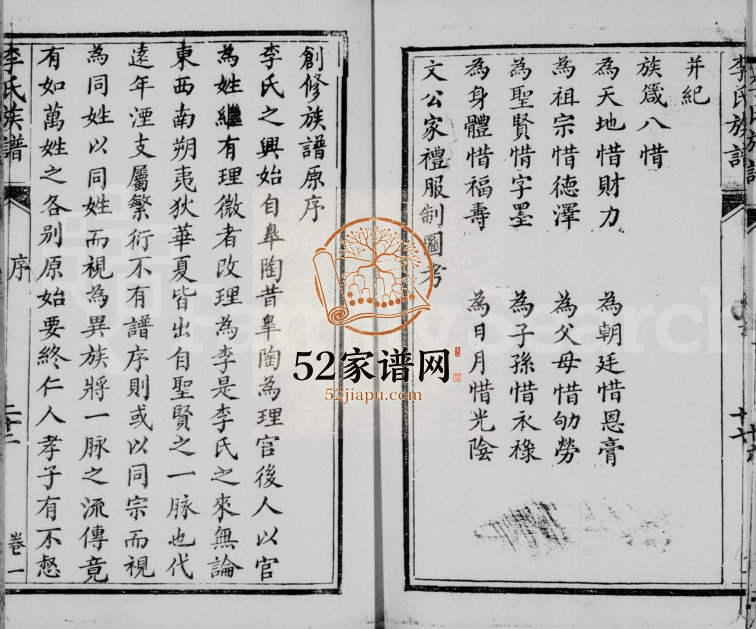 李氏族譜
并紀
族箴八惜
為天地惜財力 為朝廷惜恩膏
為祖宗惜德澤 為父母惜劬勞
為聖賢惜字墨 為子孫惜衣祿
為身體惜福壽 為日月惜光陰
文公家禮服制圖考
創修族譜原序
李氏之興始自皋陶昔皋陶為理官後人以官
為姓繼有理微者改理為李是李氏之來無論
東西南朔夷狄華夏皆出自聖賢之一脉也代
遠年湮支屬繁衍不有譜序則或以同宗而視
為同姓以同姓而視為異族將一脉之流傳竟
有如萬姓之各別原始要終仁人孝子有不愸
李氏族譜
序
卷一
52家谱网
52jiapu.com
FamilySearch